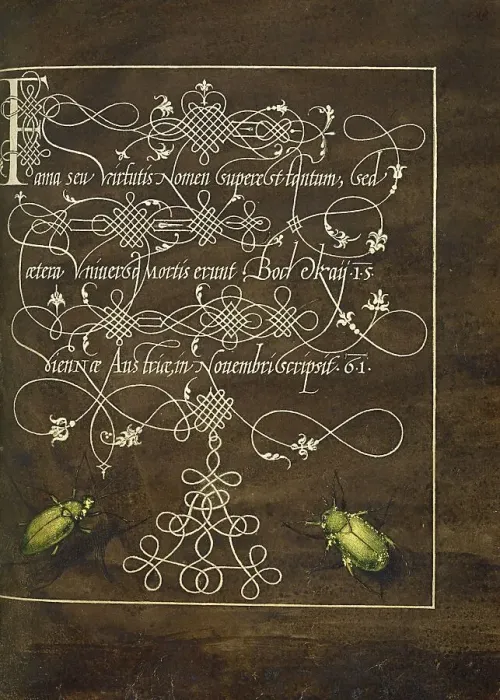 Fama seu Virtutis Nomen SupereSt tantum, Sed
Cætera Vniuersa Mortis erunt. BochKaij.15
VienNæ AusTriæ, in Nouembri Scripsit.61.